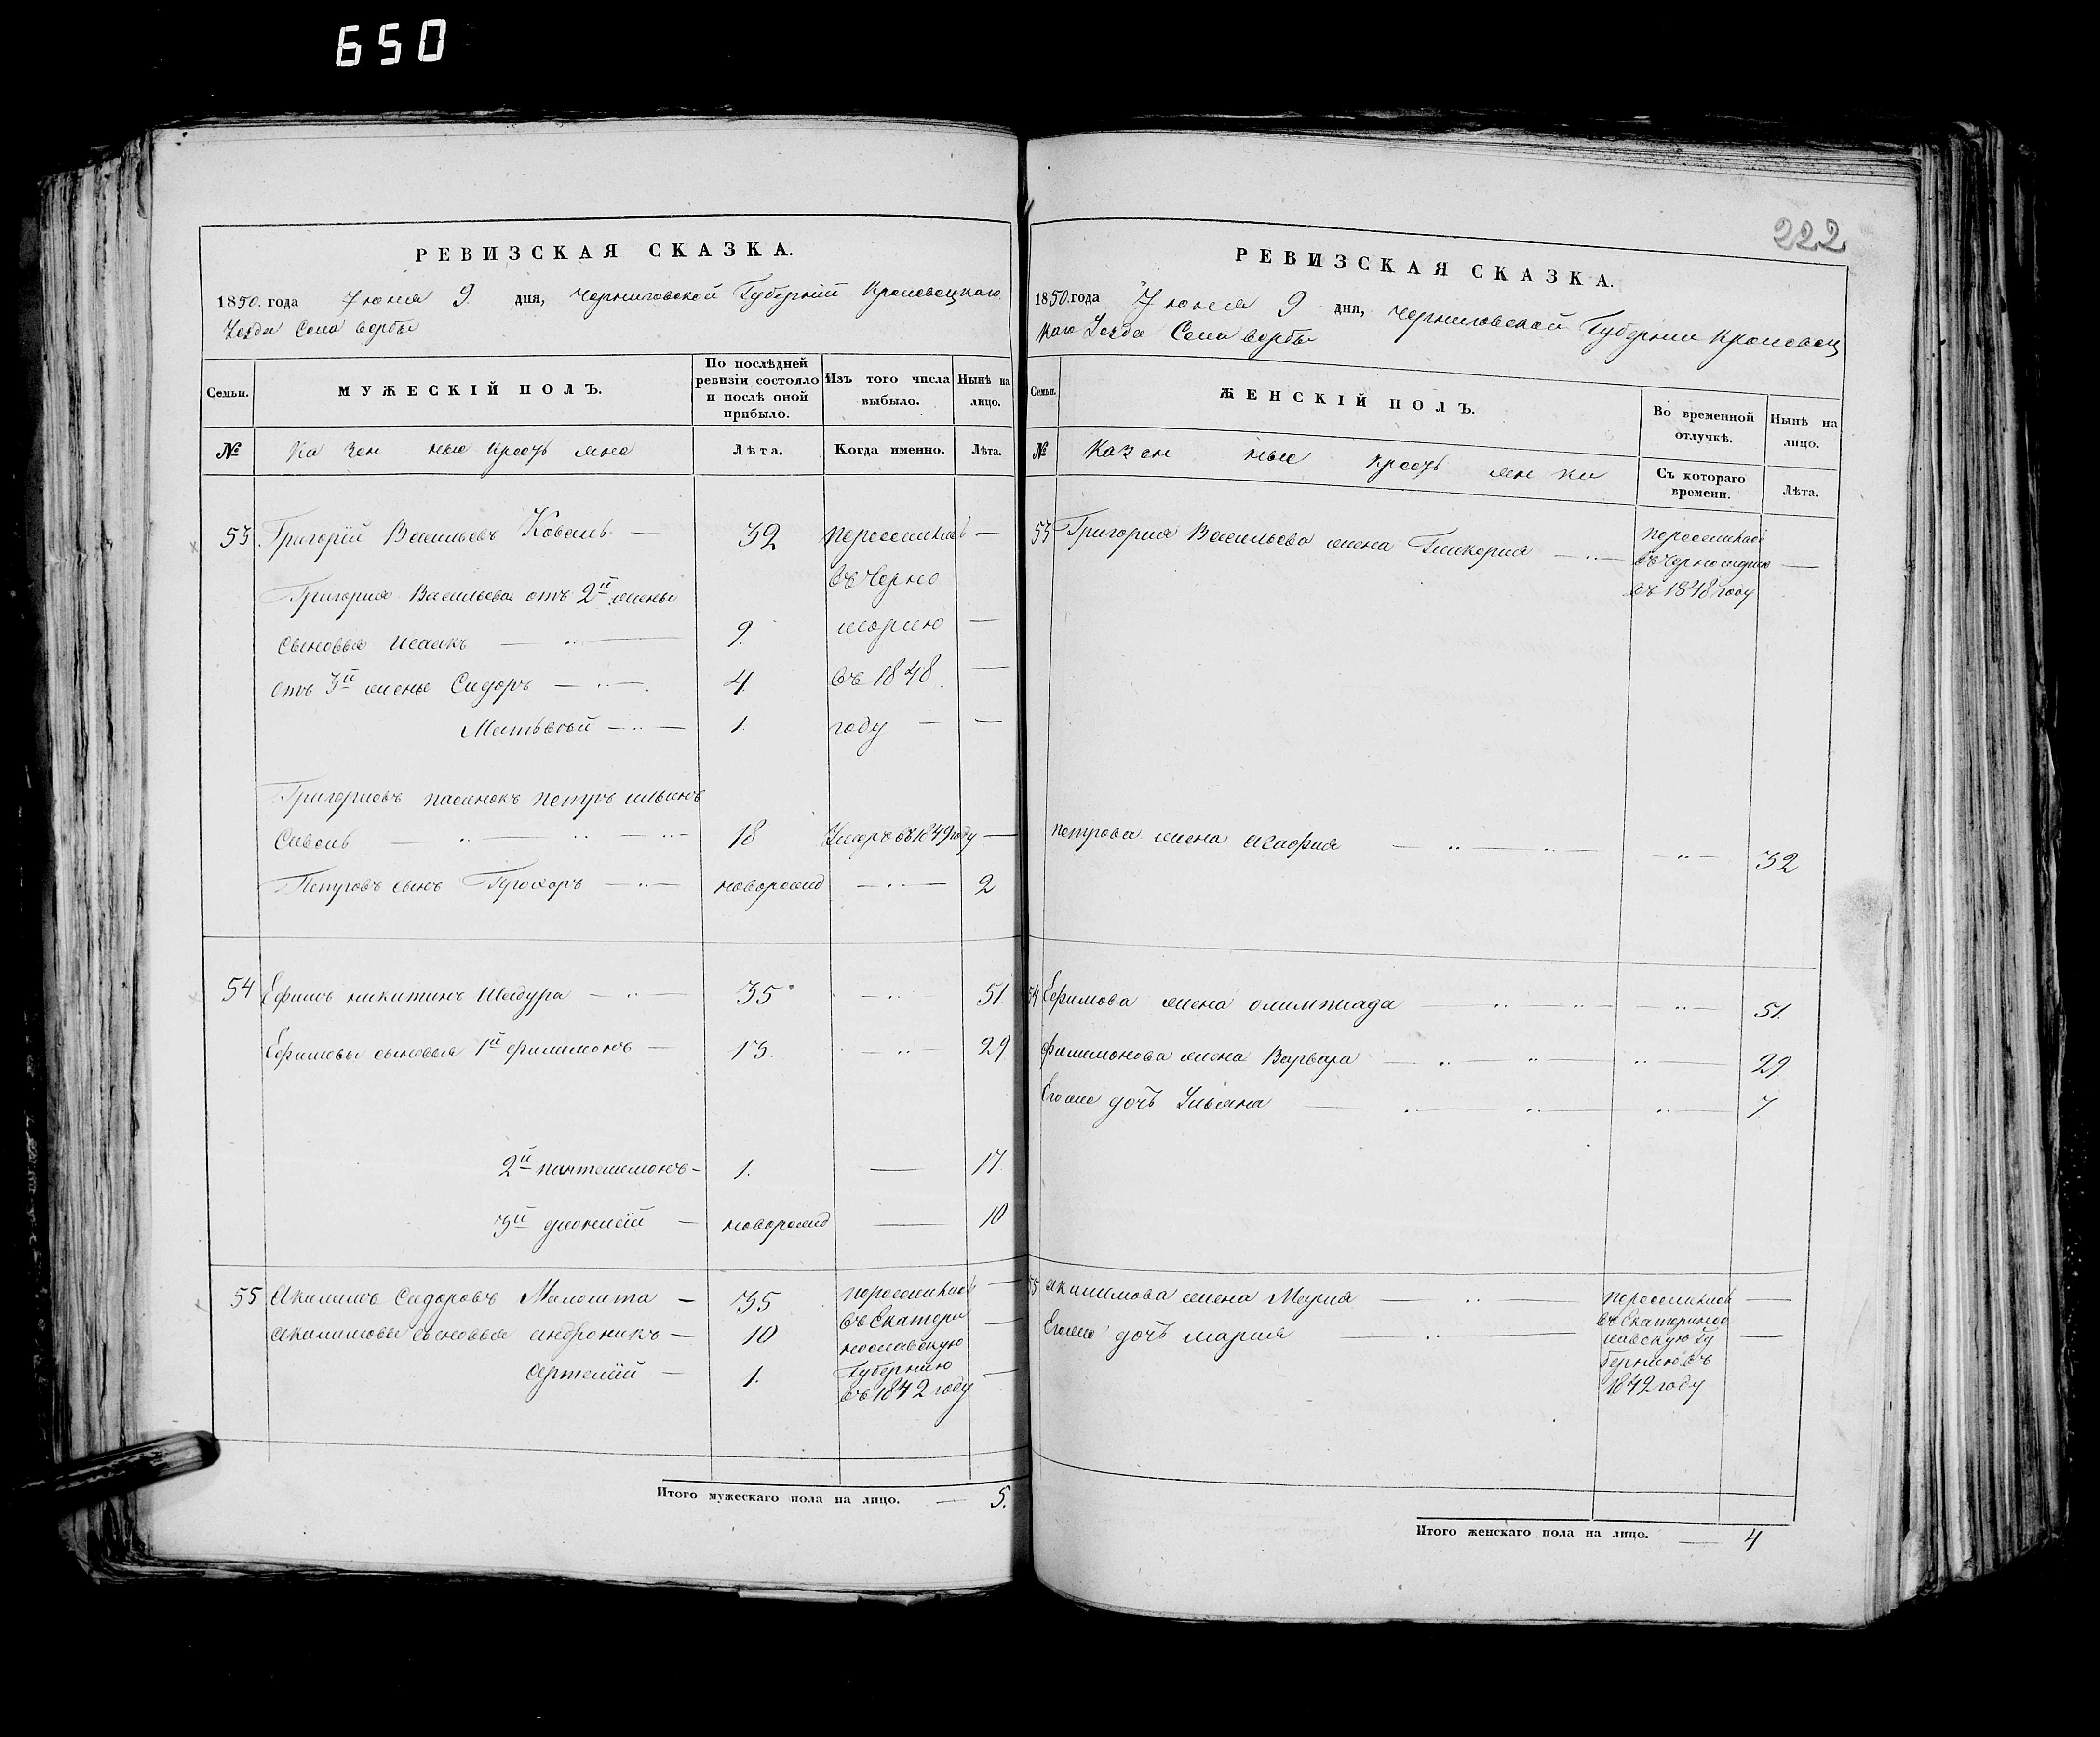 650
РЕВИЗСКАЯ СКАЗКА.
1850. года Іюня 9. дня, Черниговской Губерніи Кролевецкаго
Уезда Села Вербы
Семьи.
МУЖЕСКІЙ ПОЛЪ.
По послѣдней ревизіи состояло и послѣ оной прибыло.
Изъ того числа выбыло.
Нынѣ на лицо.
№
Ка зен ные крестьяне
Лѣта.
Когда именно.
Лѣта.
53 Григорій Васильевъ Коваль — 32 переселился —
Григорія Васильева отъ 2й жены въ Черно
сыновья Исаакъ — 9. морію —
отъ 3й жены Сидоръ — 4. въ 1848 —
Матвѣй — 1. году — —
Григоріевъ пасынокъ Петръ Ильинъ
Сивень — 18 Умеръ въ 1849 году —
Петровъ сынъ Прохоръ — новорожд — 2
54 Ефимъ Никитинъ Шадура — 35 — 51.
Ефимовы сыновья 1й Филимонъ — 13. — 29
2й Пантелимонъ — 1. — 17
3й — новорожд — 10
55 Акилимъ Сидоровъ — 35 переселился —
въ Екатери
Акилимовы сыновья Андроникъ — 10 нославскую —
Артемій — 1. Губернію —
въ 1842 году
Итого мужескаго пола на лицо. — 5.
222
РЕВИЗСКАЯ СКАЗКА.
1850. года Іюня 9 дня, Черниговской Губерніи Кролевец
каго Уезда Села Вербы
Семьи.
ЖЕНСКІЙ ПОЛЪ.
Во временной отлучкѣ.
Нынѣ на лицо.
№
Казен ные кресть ян ки
Съ котораго времени.
Лѣта.
53 Григорія Васильева жена Гликерія — переселилась
въ Черноморію —
въ 1848 году
Петрова жена Агафія — 32
54 Ефимова жена Олимпиада — 51.
Филимонова жена Варвара — 29
Его же дочь Ульяна — 7
55 Акилимова жена Марія — переселилась —
въ Екатеринос
Его же дочь Марія — лавскую Гу —
бернію въ
1842 году
Итого женскаго пола на лицо. — 4